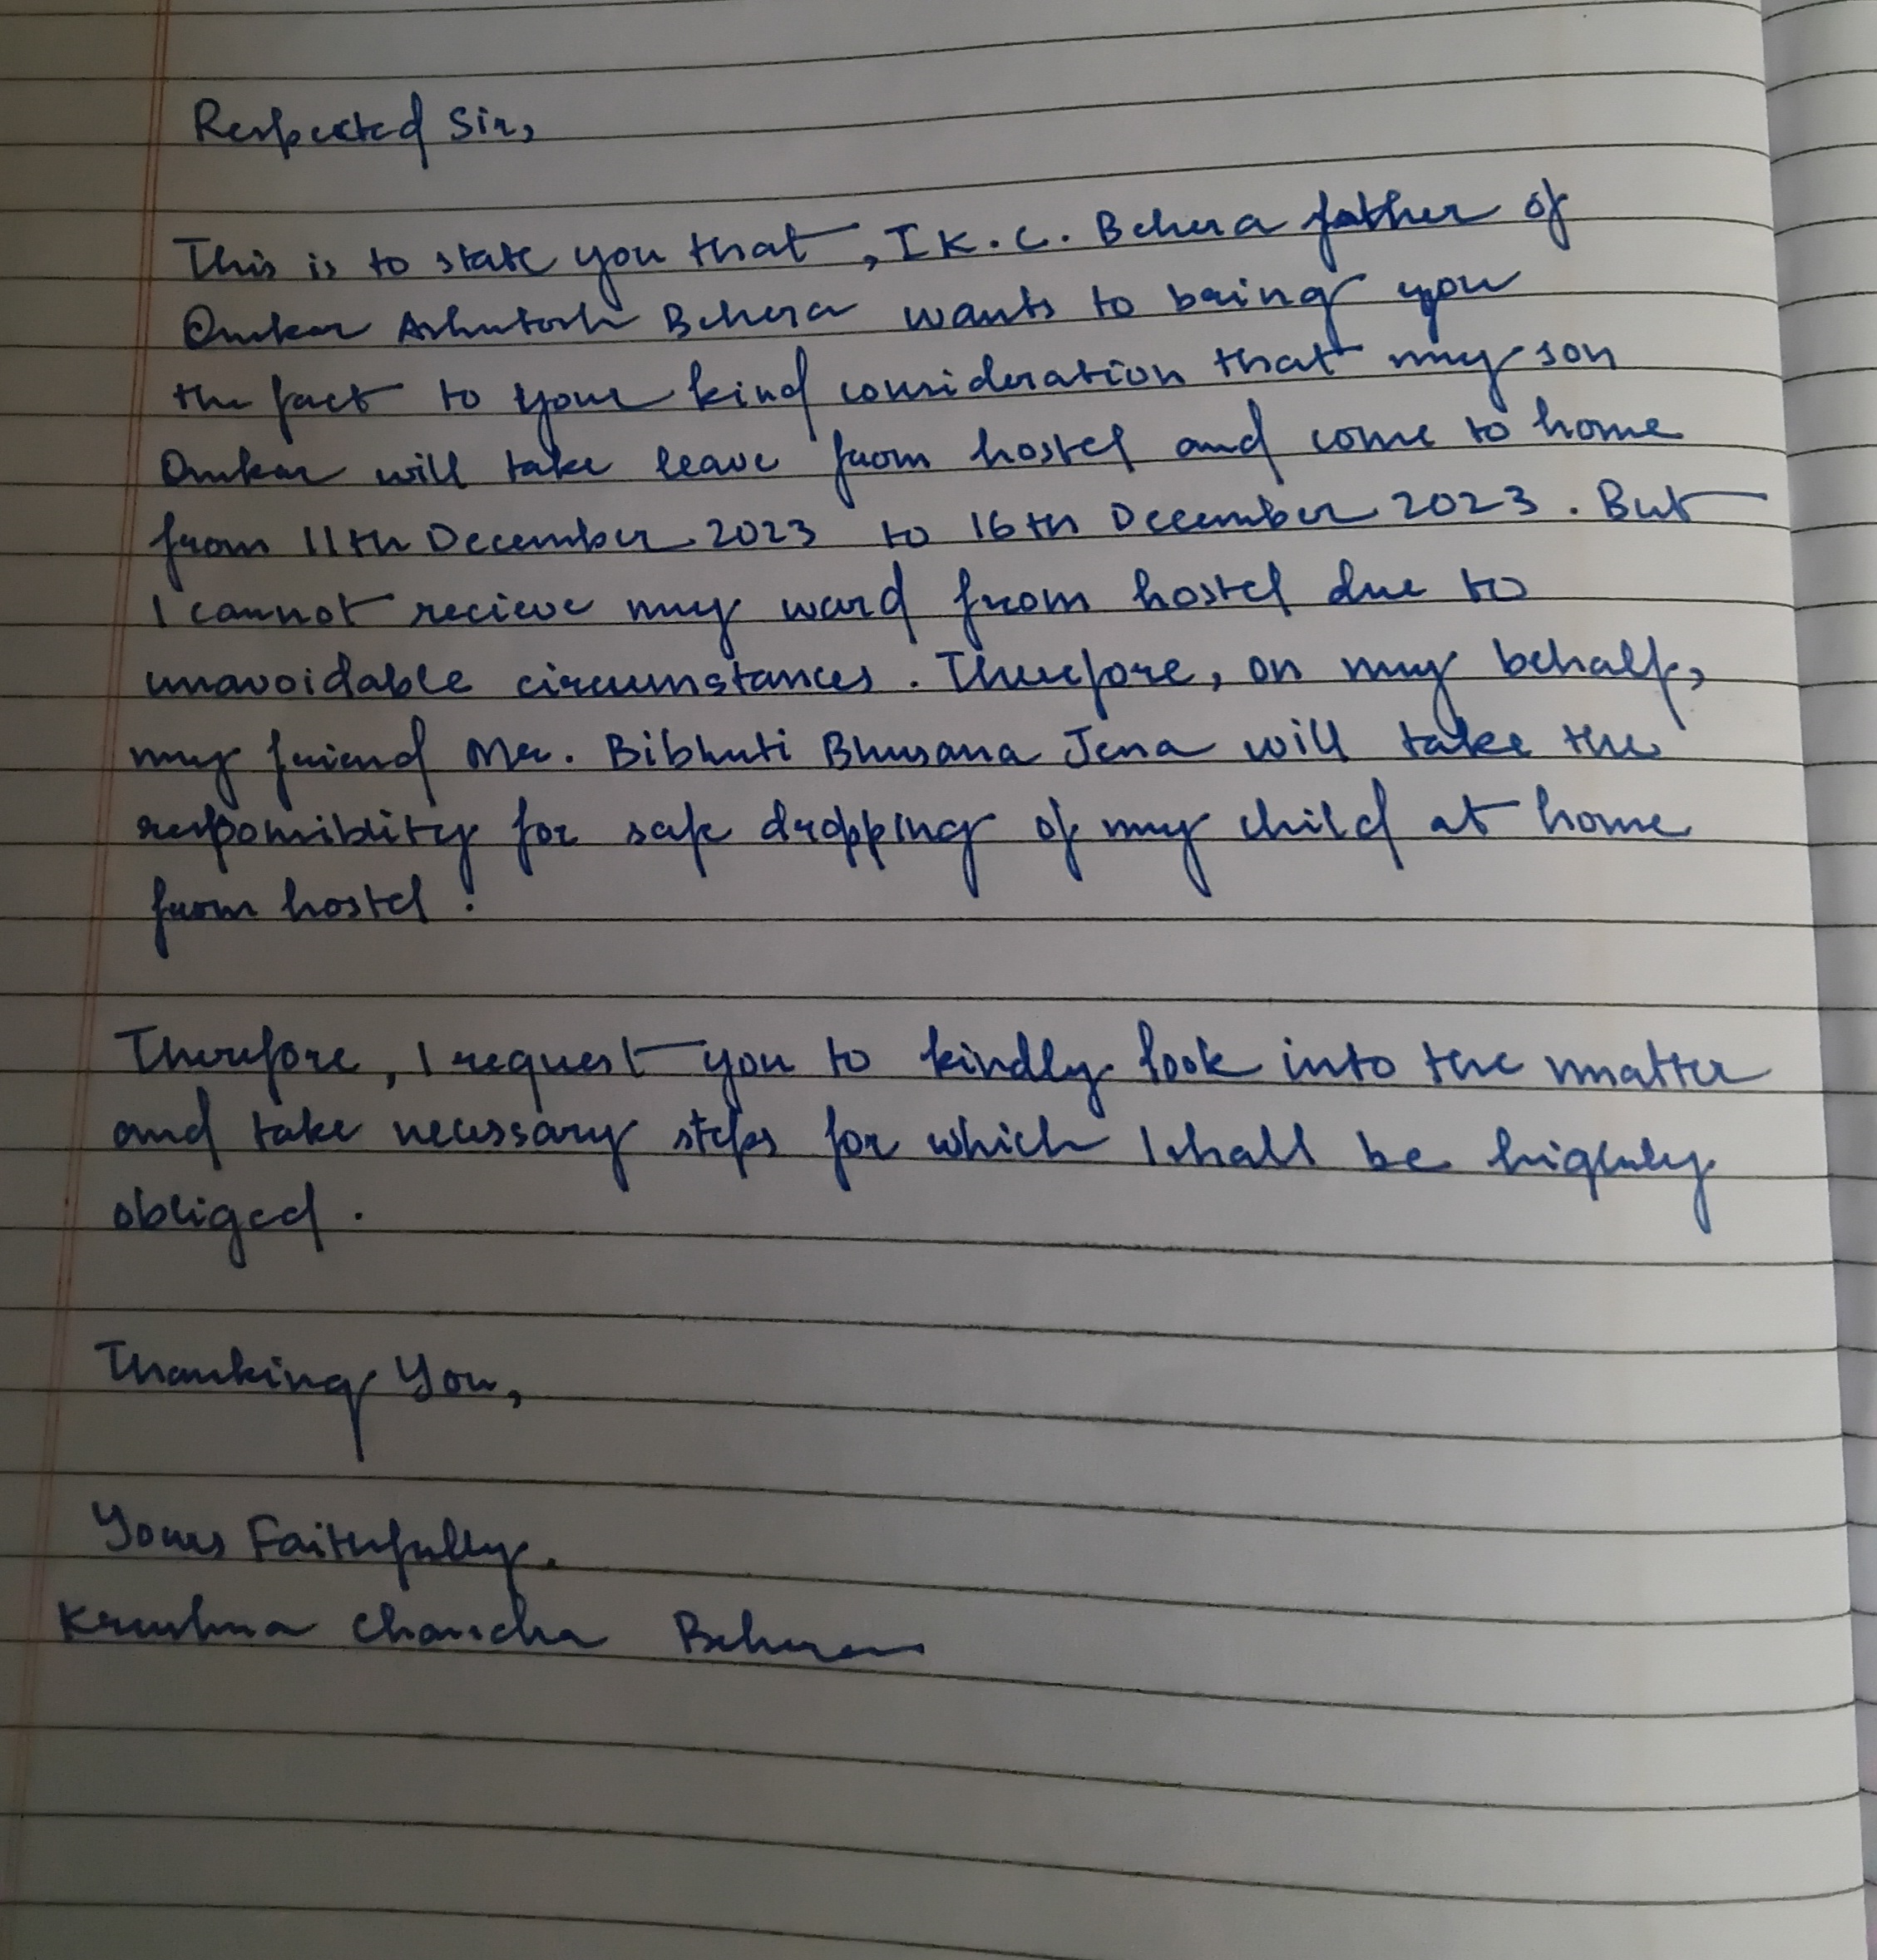 Respected Sir,
This is to state you that, I K. C. Behera father of
Omkar Ashutosh Behera wants to bring you
the fact to your kind consideration that my son
Omkar will take leave from hostel and come to home
from 11th December 2023 to 16th December 2023. But
I cannot recieve my ward from hostel due to
unavoidable circumstances. Therefore, on my behalf,
my friend Mr. Bibhuti Bhusana Jena will take the
responsiblity for safe dropping of my child at home
from hostel.
Therefore, I request you to kindly look into the matter
and take necessary steps for which I shall be highly
obliged.
Thanking You,
Yours Faithfully.
Krushna Chandra Behera